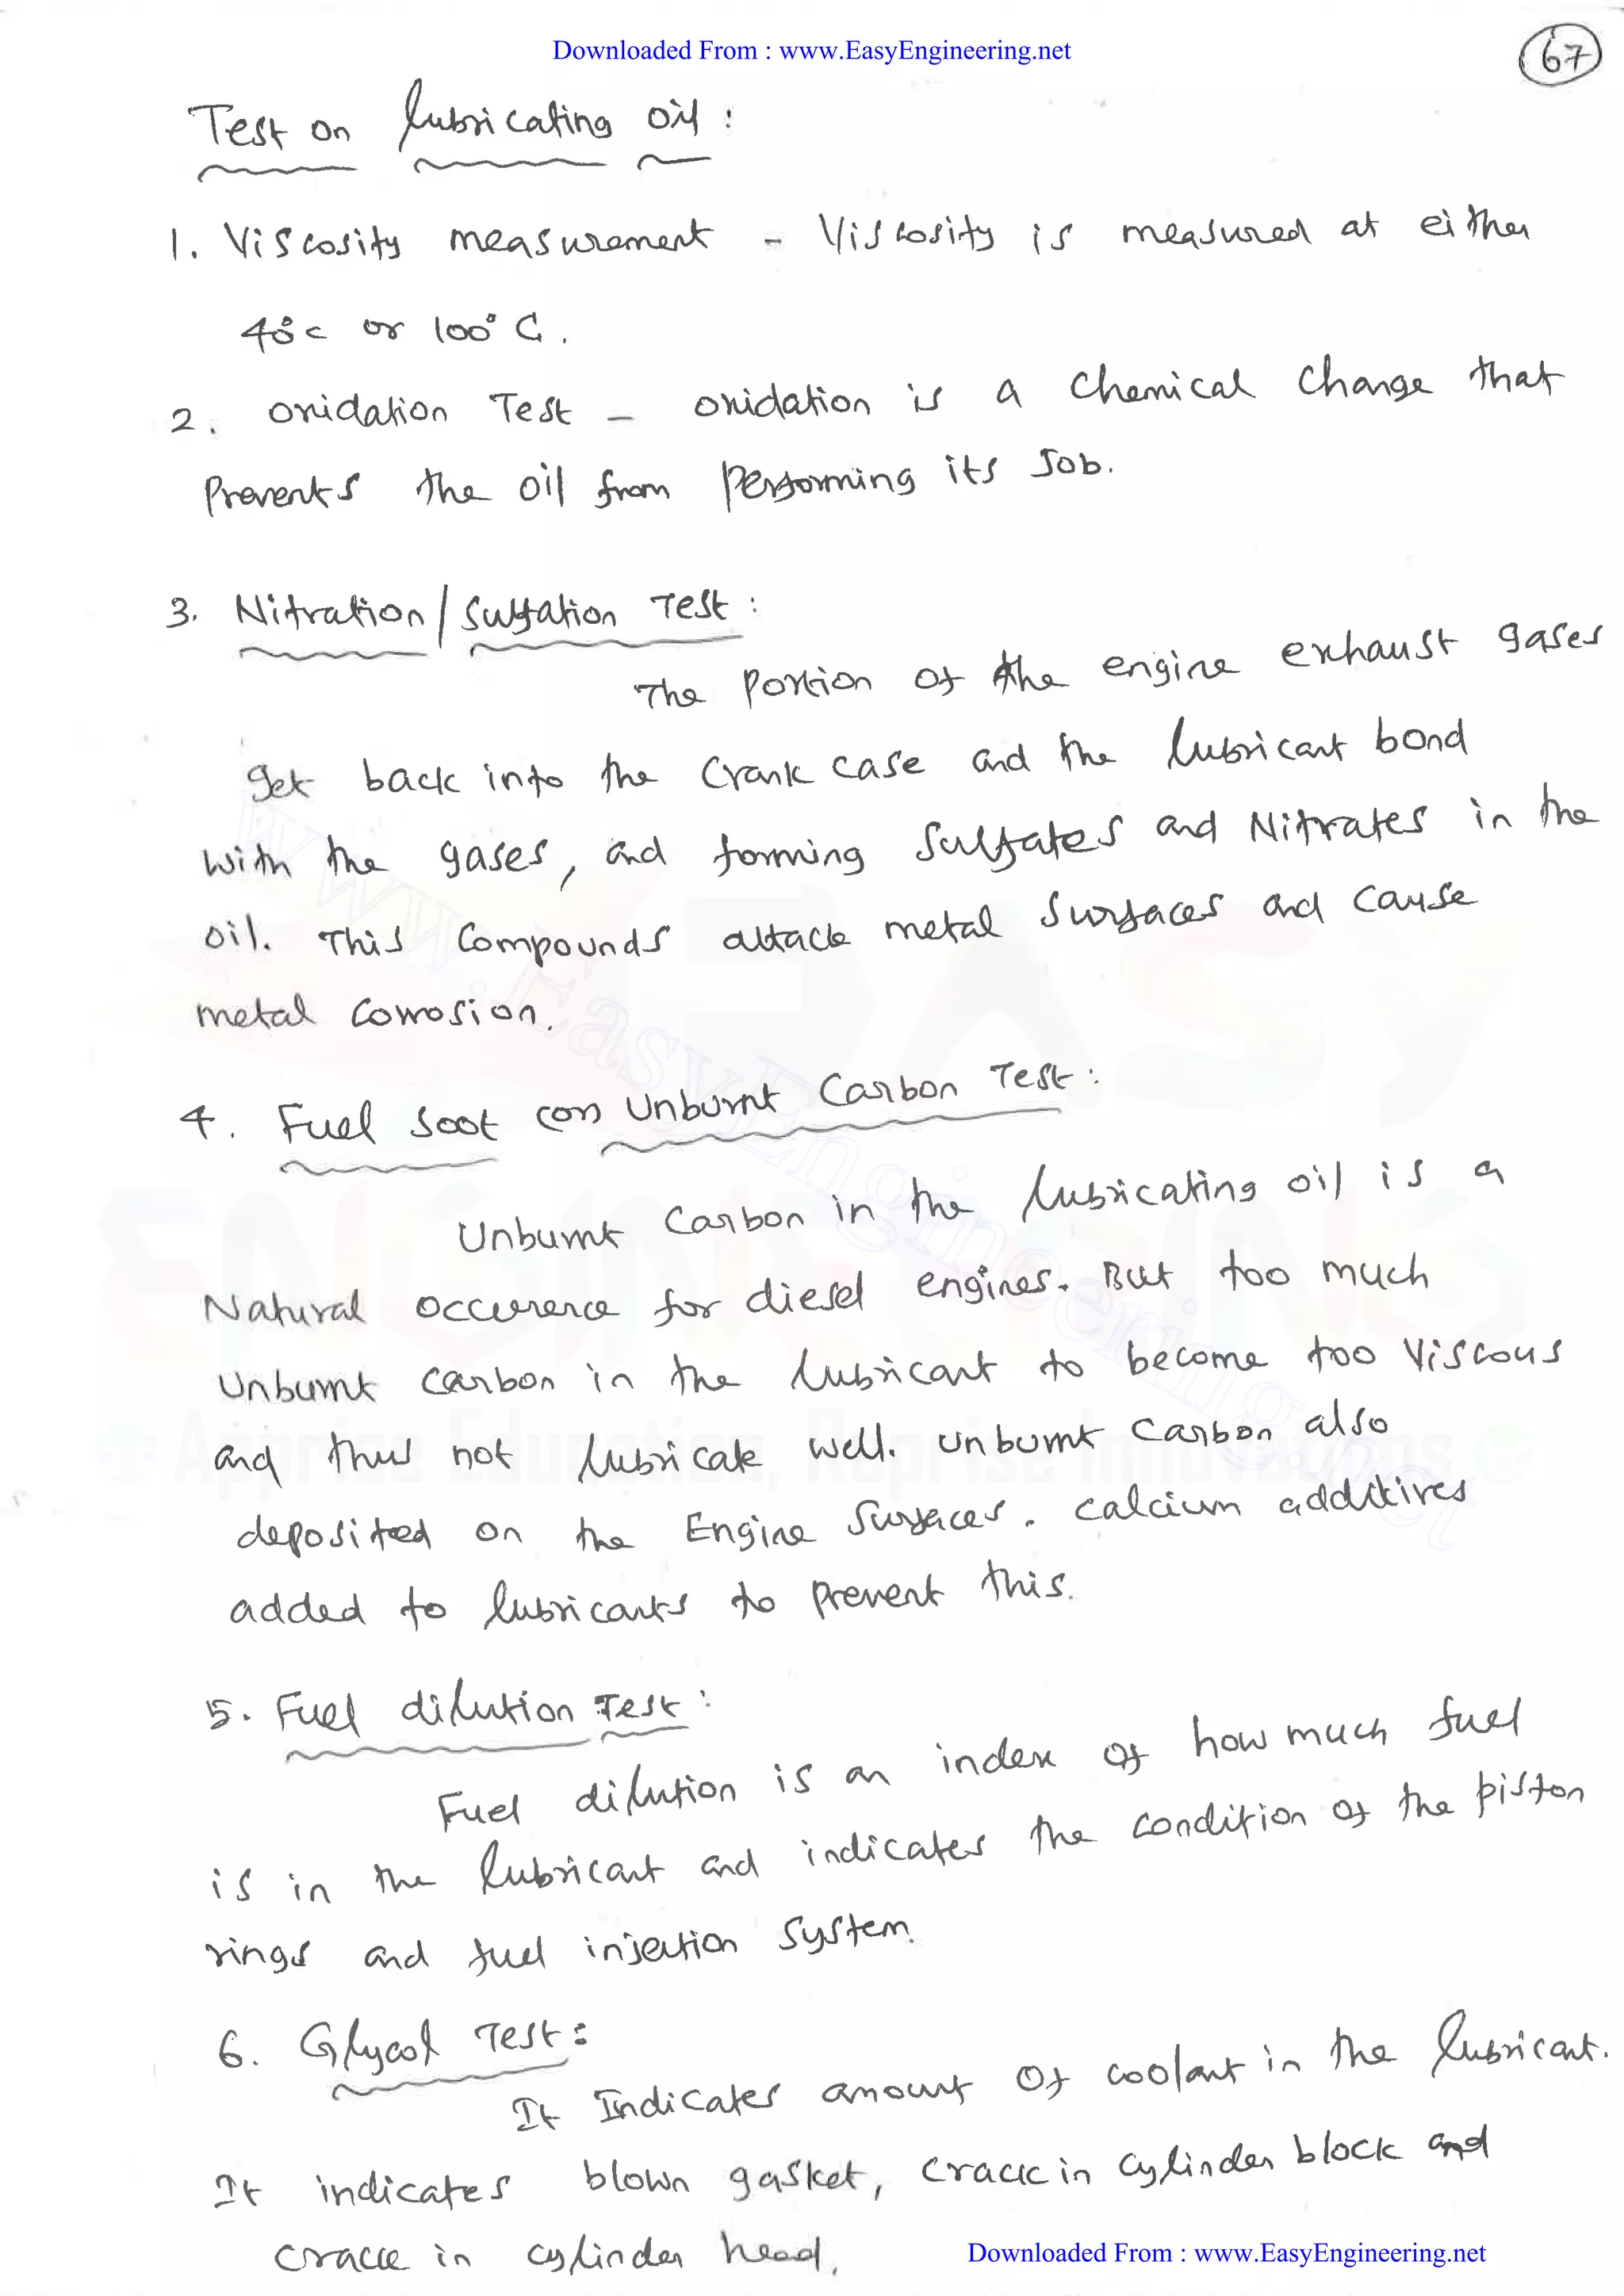 Downloaded From : www.EasyEngineering.net
67
Test on lubricating oil :
1. Viscosity measurement - Viscosity is measured at either
40°c or 100°C.
2. oxidation Test - oxidation is a chemical change that
Prevents the oil from Performing its Job.
3. Nitration / Sulfation Test :
The Portion of the engine exhaust gases
get back into the Crank case and the lubricant bond
with the gases, and forming Sulfates and Nitrates in the
oil. This Compounds attack metal Surfaces and cause
metal Corrosion.
4. Fuel Soot (or) Unburnt Carbon Test :
Unburnt Carbon in the lubricating oil is a
Natural occurrence for diesel engines. But too much
Unburnt carbon in the lubricant to become too Viscous
and thus not lubricate well. unburnt carbon also
deposited on the Engine Surfaces. calcium additives
added to lubricants to Prevent this.
5. Fuel dilution Test :
Fuel dilution is an index of how much fuel
is in the lubricant and indicates the condition of the piston
rings and fuel injection System.
6. Glycol Test :
It Indicates amount of coolant in the lubricant.
It indicates blown gasket, crack in cylinder block and
crack in cylinder head.
Downloaded From : www.EasyEngineering.net
www.EasyEngineering.net
EASY
ENGINEERING
Apprise Education, Reprise Innovations